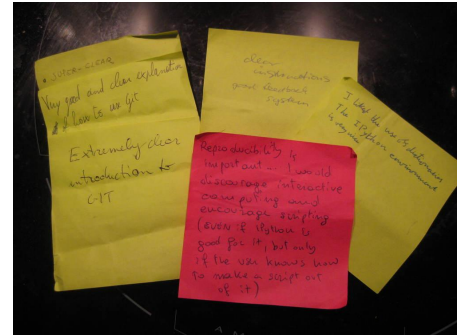 • SUPER-CLEAR
Very good and clear explanation
how to use git
Extremely clear
introduction to
GIT
clear
instructions
great feedback
system
I liked the use of
The IPython environment
is very nice
Reproducibility is
important... I would
discourage interactive
computing and
encourage scripting
(even if IPython is
good for it, but only
if the user knows how
to make a script out
of it)